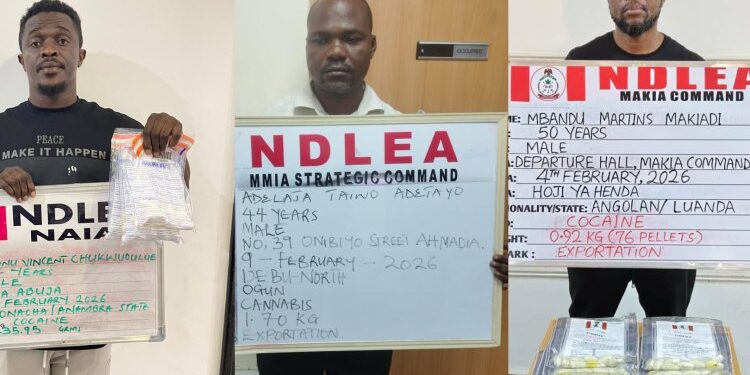 PEACE
MAKE IT HAPPENING
NDLEA
NAIA
VINCENT CHUKWUDULUE
YEARS
ABUJA
FEBRUARY 2026
ONACHA/ANAMBRA STATE
COCAINE
35.95 GRMS
OCCUPIED
NDLEA
MMIA STRATEGIC COMMAND
ADELAJA TAIWO ADETAYO
44 YEARS
MALE
NO, 39 ONIBIYO STREET AHMADIA.
9 - FEBRUARY - 2026
IJEBU-NORTH
OGUN
CANNABIS
1.70 KG
EXPORTATION.
NDLEA
MAKIA COMMAND
MBANDU MARTINS MAKIADI
50 YEARS
MALE
DEPARTURE HALL, MAKIA COMMAND
4TH FEBRUARY, 2026
HOJI YA HENDA
ONALITY/STATE: ANGOLAN/LUANDA
COCAINE
GHT: 0.92 KG (76 PELLETS)
ARK: EXPORTATION